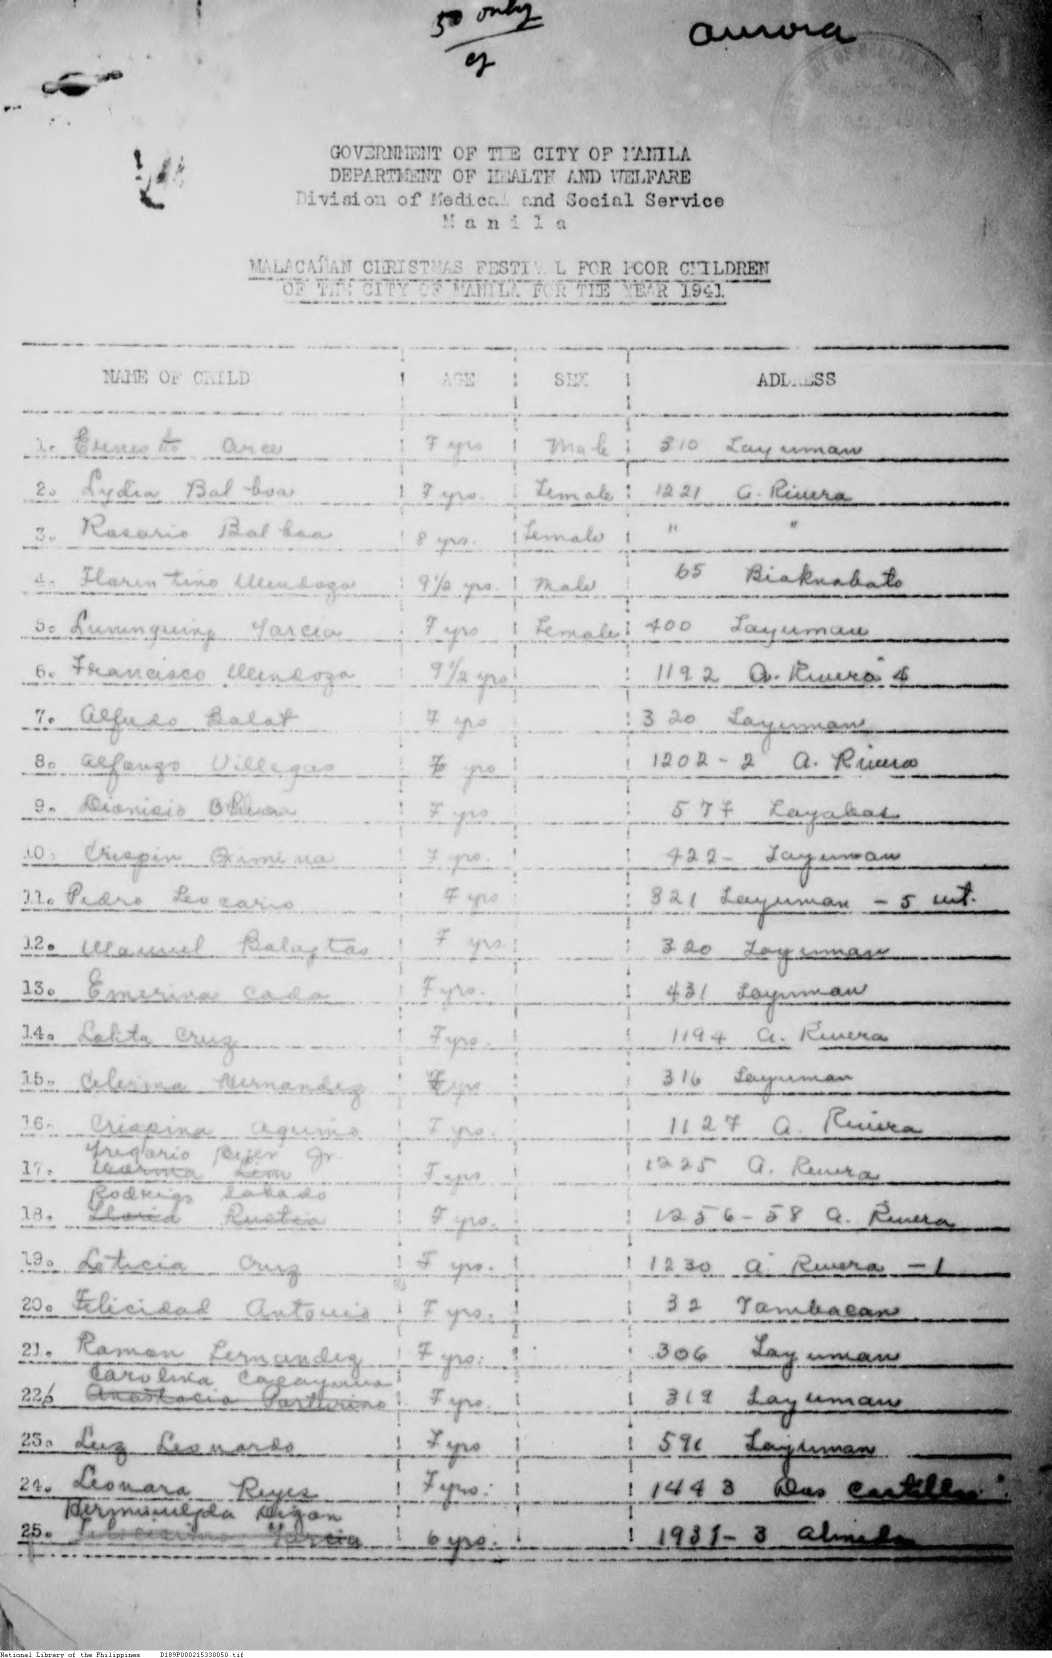 50 only
Aurora
GOVERNMENT OF THE CITY OF MANILA
DEPARTMENT OF HEALTH AND WELFARE
Division of Medical and Social Service
M a n i l a
MALACAÑAN CHRISTMAS FESTIVAL FOR POOR CHILDREN
OF THE CITY OF MANILA FOR THE YEAR 1941
NAME OF CHILD AGE SEX ADDRESS
1. Ernesto Arce 7 yrs Male 310 Layuman
2. Lydia Balboa 7 yrs. Female 1221 A. Rivera
3. Rosario Balboa 8 yrs. Female " "
4. Florentino Mendoza 9 1/2 yrs. Male 65 Biaknabato
5. Luningning Garcia 7 yrs Female 400 Layuman
6. Francisco Mendoza 9 1/2 yrs 1192 A. Rivera
7. Alfredo Balat 7 yrs 320 Layuman
8. Alfonzo Villegas yrs 1202-2 A. Rivera
9. Dionisio 7 yrs 577 Layabas
10. Crispin Ximena 7 yrs. 422- Layuman
11. Pedro Leocario 7 yrs 321 Layuman - 5 int.
12. Manuel Balagtas 7 yrs 320 Layuman
13. Emerina Cada 7 yrs. 431 Layuman
14. Lolita Cruz 7 yrs. 1194 A. Rivera
15. Celerina Hernandez yrs 316 Layuman
16. Crispina Aquino 7 yrs. 1127 A. Rivera
Gregorio Reyes Jr.
17. Leon 7 yrs 1225 A. Rivera
Rodrigo Sabado
18. Gloria Rustia 7 yrs. 1256-58 A. Rivera
19. Leticia Cruz 7 yrs. 1230 A. Rivera -1
20. Felicidad Antonio 7 yrs. 32 Tambacan
21. Ramon Fernandez 7 yrs. 306 Layuman
Carolina
22. Anastacio 7 yrs. 319 Layuman
23. Luz Leonardo 7 yrs 591 Layuman
24. Leonara Reyes 7 yrs. 1443 Dos Castillas
Dizon
25. Garcia 6 yrs. 1931-3 Almeda
National Library of the Philippines D189P000215330050.tif